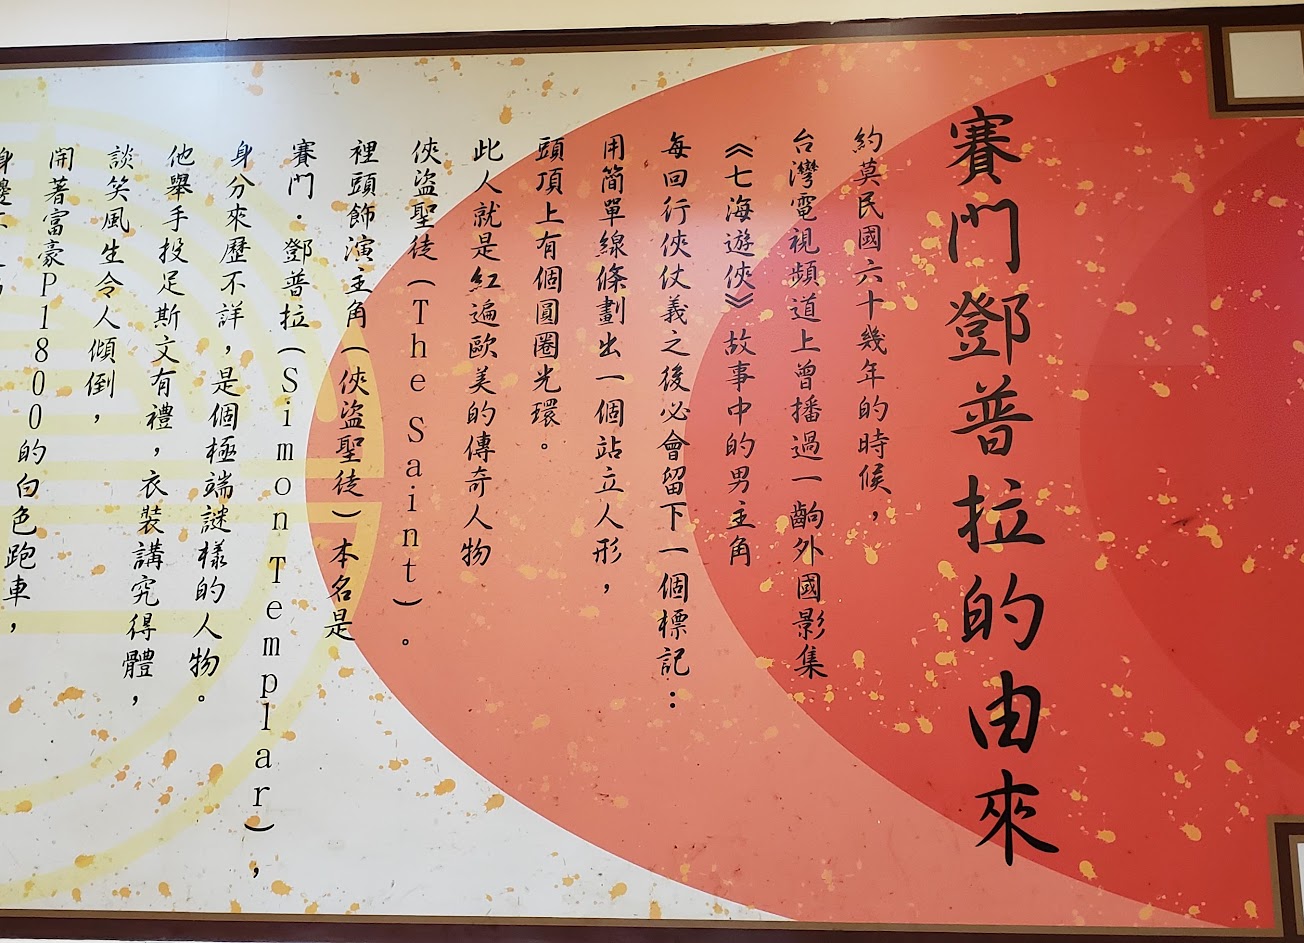 賽門鄧普拉的由來
約莫民國六十幾年的時候，
台灣電視頻道上曾播過一齣外國影集
《七海遊俠》故事中的男主角
每回行俠仗義之後必會留下一個標記：
用簡單線條劃出一個站立人形，
頭頂上有個圓圈光環。
此人就是紅遍歐美的傳奇人物
俠盜聖徒(The Saint)。
裡頭飾演主角(俠盜聖徒)本名是
賽門．鄧普拉(Simon Templar)，
身分來歷不詳，是個極端謎樣的人物。
他舉手投足斯文有禮，衣裝講究得體，
談笑風生令人傾倒，
開著富豪P1800的白色跑車，
身邊